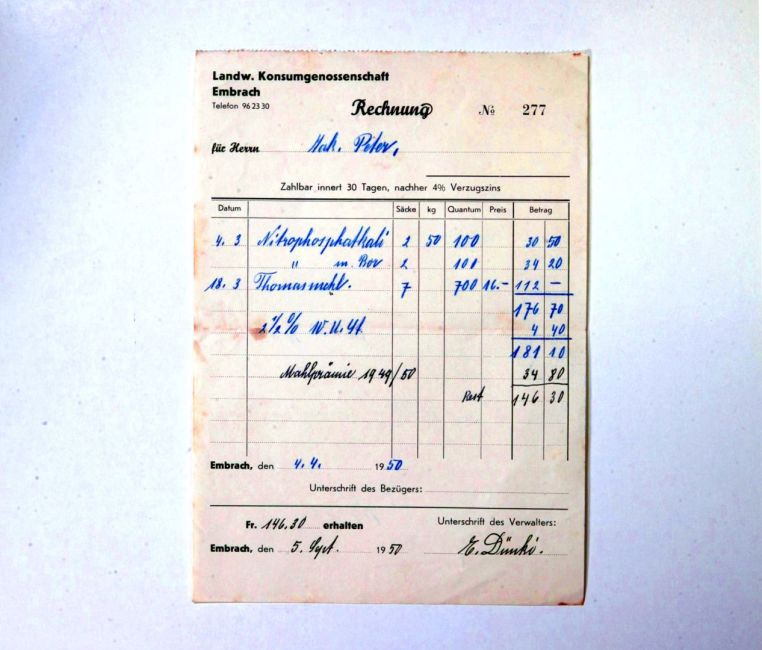 Landw. Konsumgenossenschaft
Embrach
Telefon 96 23 30
Rechnung № 277
für Herrn Peter,
Zahlbar innert 30 Tagen, nachher 4% Verzugszins
Datum Säcke kg Quantum Preis Betrag
4. 3 Nitrophosphatkali 2 50 100 30 50
" m. Bor 2 100 34 20
18. 3 Thomasmehl. 7 700 16.- 112 —
176 70
2 1/2 % W.U.St. 4 40
181 10
Mahlprämie 1949/50 34 80
Rest 146 30
Embrach, den 4. 4. 1950
Unterschrift des Bezügers:
Fr. 146.30 erhalten Unterschrift des Verwalters:
Embrach, den 5. Sept. 1950 E.